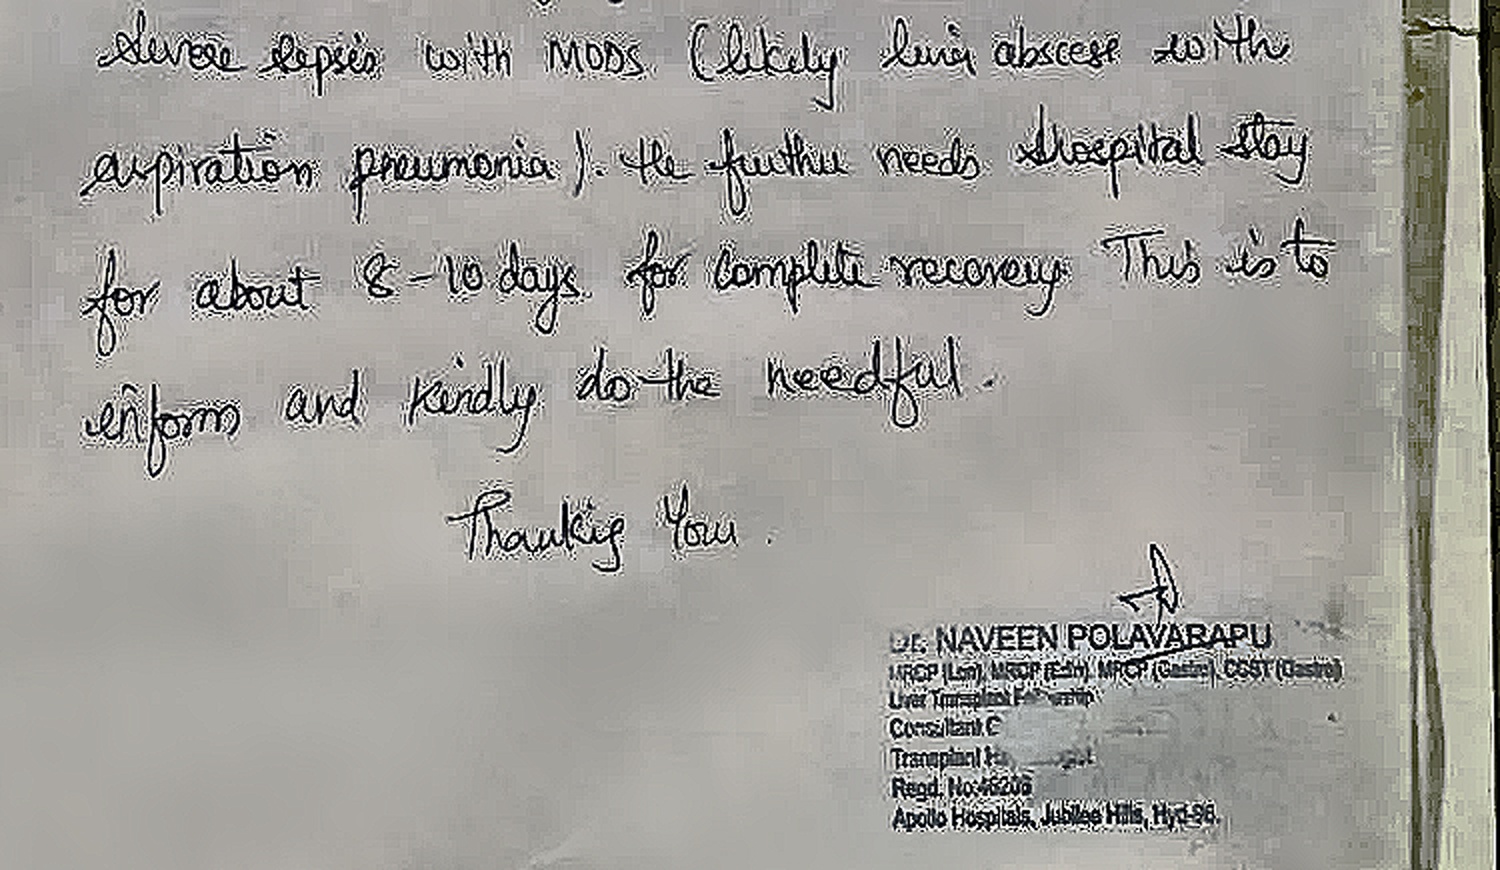 Severe sepsis with MODS (likely liver abscess with
aspiration pneumonia). He further needs Hospital stay
for about 8-10 days for complete recovery. This is to
inform and kindly do the needful.
Thanking You.
Dr. NAVEEN POLAVARAPU
MRCP (Lon), MRCP (Edin), MRCP (Gastro), CCST (Gastro)
Liver Transplant Fellowship
Consultant
Transplant
Regd. No:46206
Apollo Hospitals, Jubilee Hills, Hyd-96.